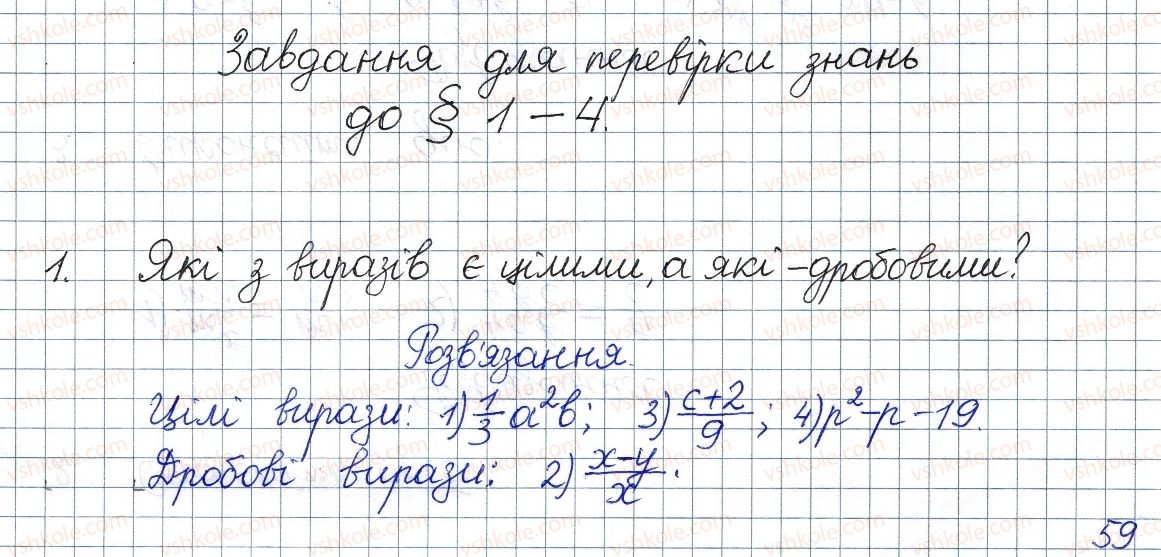 Завдання для перевірки знань
до § 1 – 4.
1. Які з виразів є цілими, а які – дробовими?
Розв'язання.
Цілі вирази: 1) 1/3 a²b; 3) (c+2)/9; 4) p²-p-19.
Дробові вирази: 2) (x-y)/x.
59